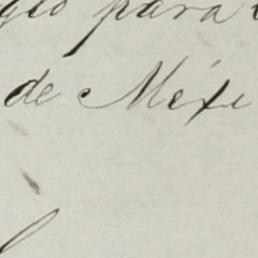 gio para
de Méxi